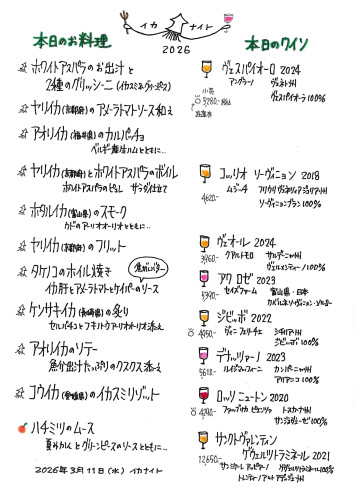 イカ ナイト
2026
本日のお料理
ホワイトアスパラのお出汁と
2種のグリッシーニ(イカスミ&グリーンピース)
ヤリイカ(京都府)のアメーラトマトソース和え
アオリイカ(福井県)のカルパッチョ
ベルギー産生ハムとともに…
ヤリイカ(京都府)とホワイトアスパラのボイル
ホワイトアスパラのピュレ サラダ仕立て
ホタルイカ(富山県)のスモーク
カドのアーリオオーリオとともに…
ヤリイカ(京都府)のフリット
タケノコのホイル焼き
焦がしバター
イカ肝とアメーラトマトとケイパーのソース
ケンサキイカ(長崎県)の炙り
セルバチコとフキノトウアーリオオーリオ添え
アオリイカのソテー
魚介出汁たっぷりのクスクス添え
コウイカ(愛媛県)のイカスミリゾット
ハチミツのムース
夏みかんとグリーンピースのソースとともに…
2026年3月11日(水) イカナイト
本日のワイン
ヴェスパイオーロ 2024
ヴェネト州
ヴェスパイオーラ 100%
5280-
コッリオ ソーヴィニョン 2018
ムジーチ フリウリヴェネツィアジュリア州
4620- ソーヴィニョンブラン 100%
ヴェオール 2024
クアルトモロ サルデーニャ州
3960- ヴェルメンティーノ 100%
アワ ロゼ 2023
セイズファーム 富山県・日本
5390- カベルネソーヴィニヨン・メルロー
ジビッボ 2022
ヴィーニ フェリーチェ シチリア州
4950- ジビッボ 100%
デナッツァーノ 2023
ルイジマッフィーニ カンパーニャ州
5610- アリアニコ 100%
ロッソ ニュートン 2020
ファットリア ピエンツァ トスカーナ州
4290- サンジョヴェーゼ 100%
サンクトヴァレンティン
ゲヴェルツトラミネール 2021
12,650- サンミケーレ アッピアーノ ゲヴェルツトラミネール 100%
トレンティーノアルトアディジェ州